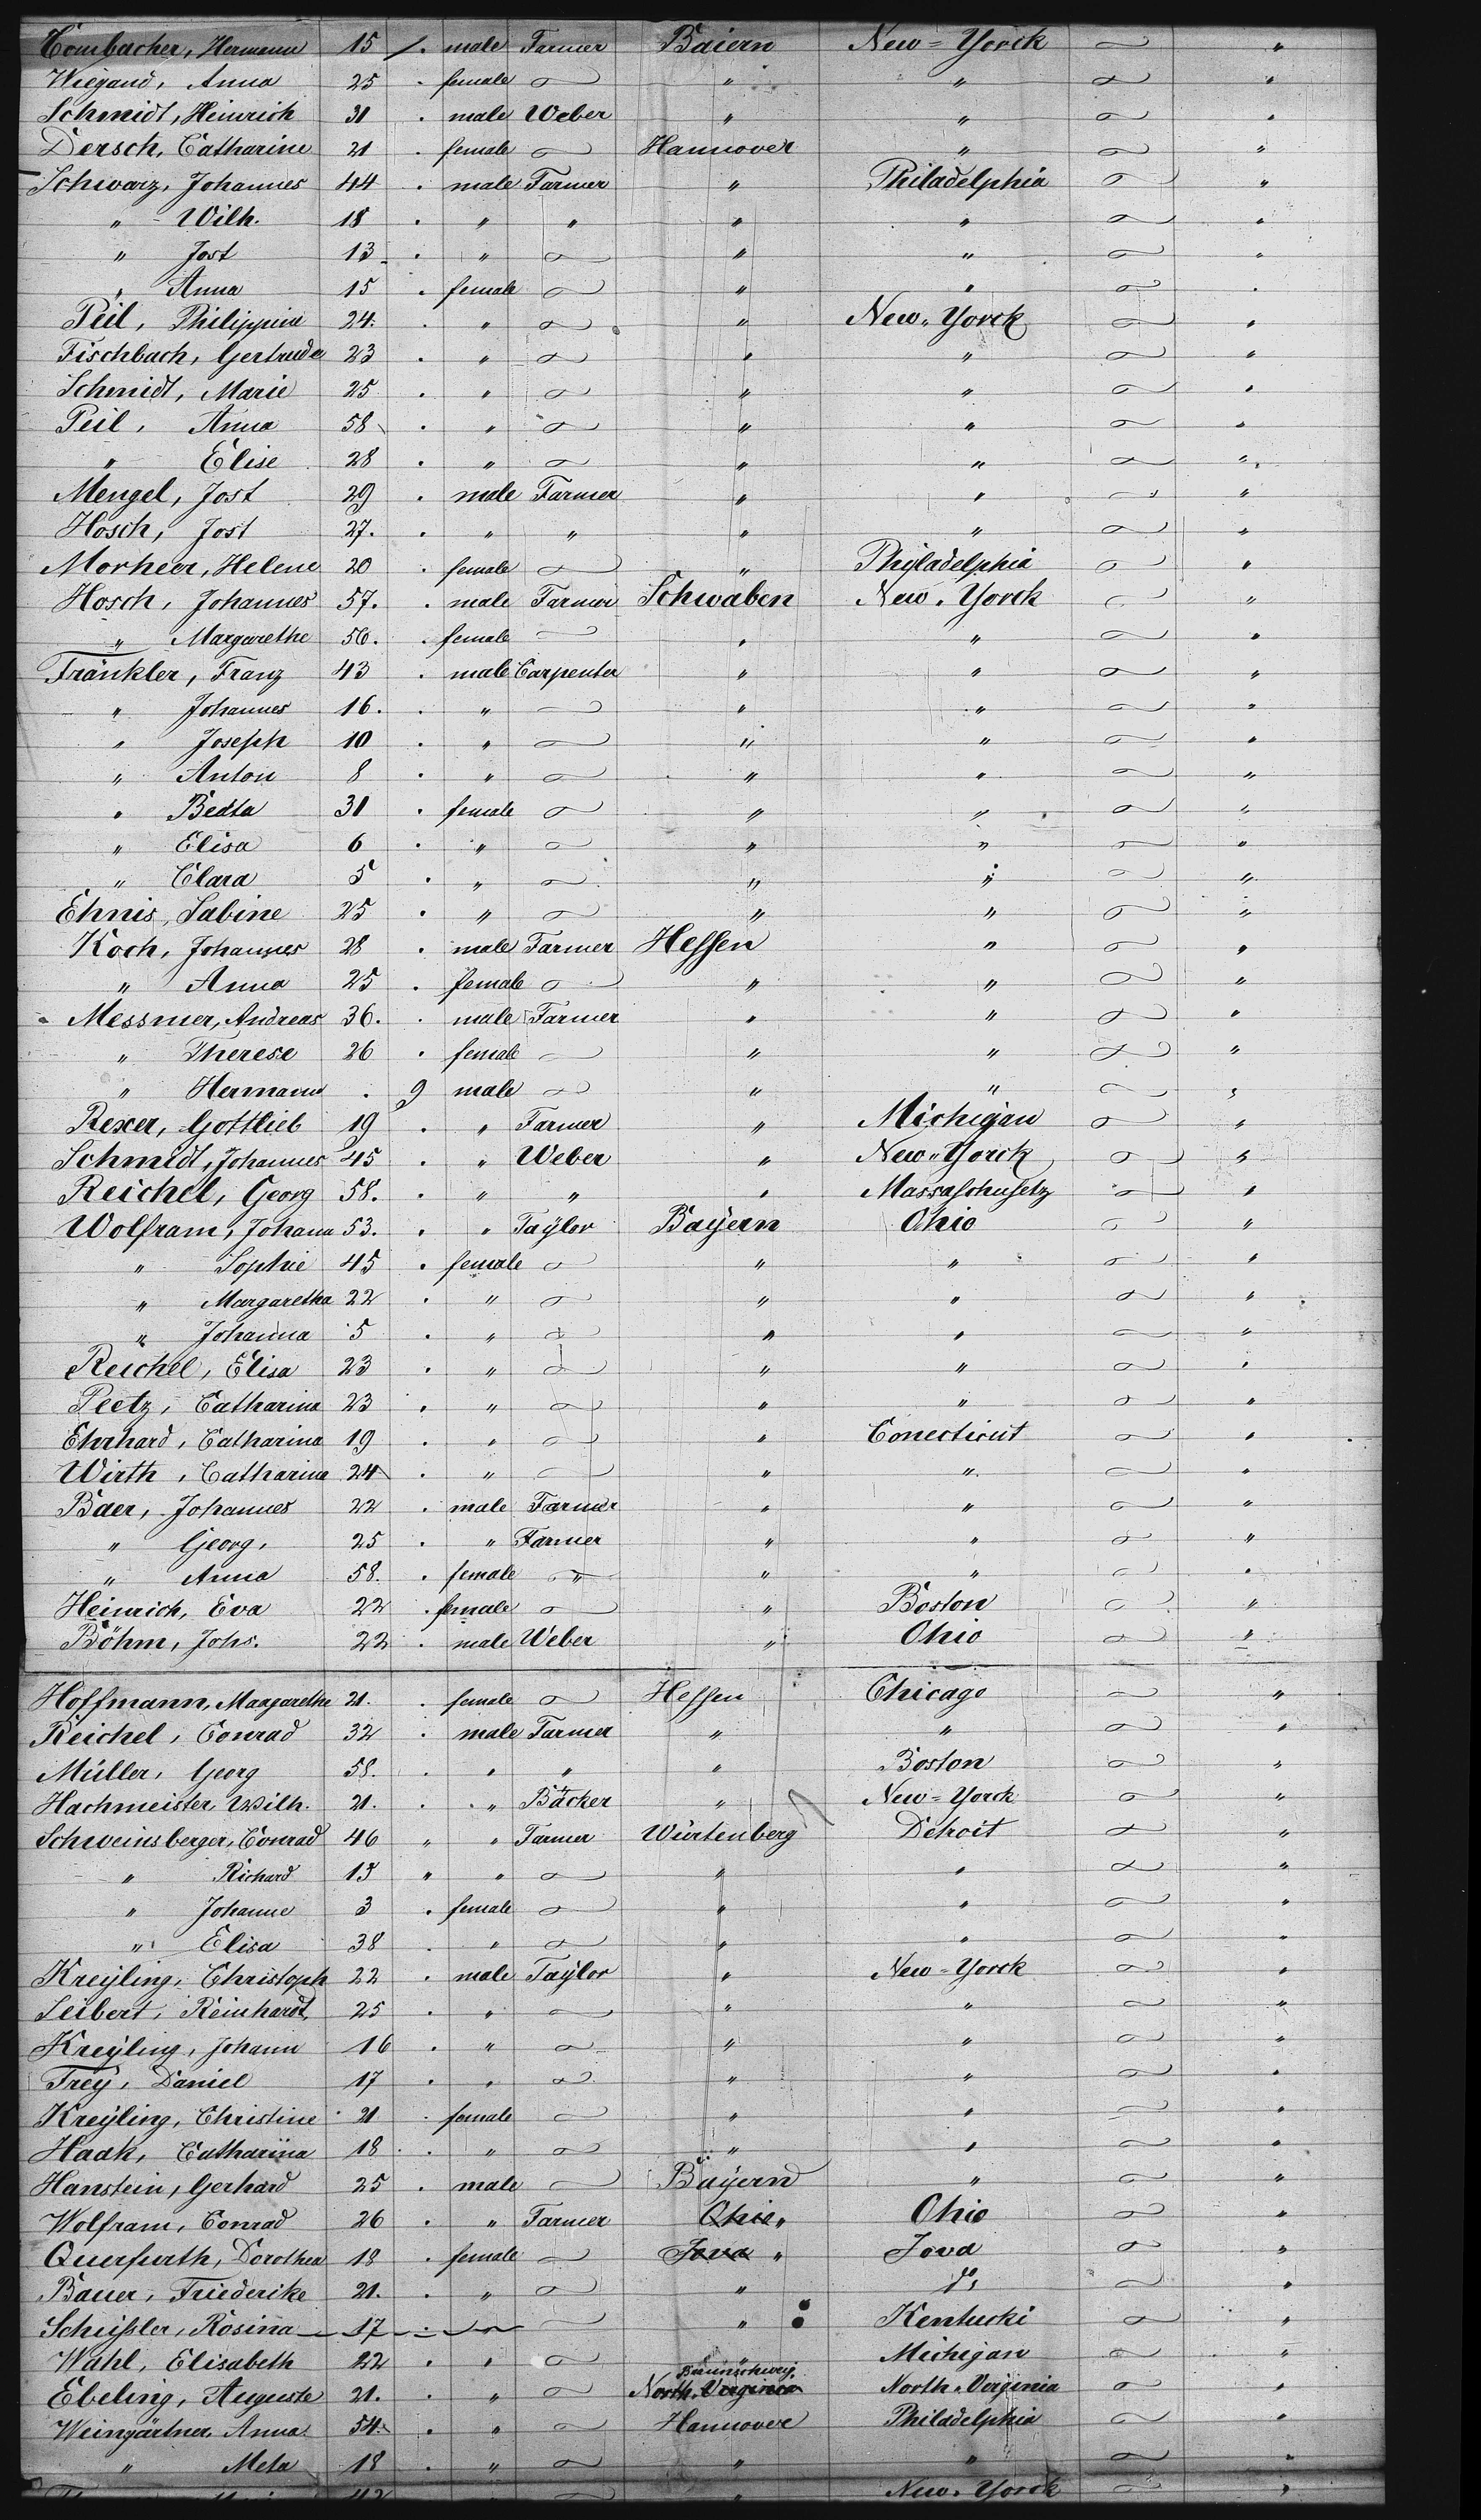 Combacher, Hermann 15 / . male Farmer Baiern New=Yorck "
Wiegand, Anna 25 . female " " "
Schmidt, Heinrich 31 . male Weber " " "
Dersch, Catharine 21 . female Hannover " "
Schwarz, Johannes 44 . male Farmer " Philadelphia "
" Wilh. 18 . " " " " "
" Jost 13 . " " " "
" Anna 15 . female " " "
Peil, Philippina 24. . " " New-Yorck "
Fischbach, Gertrude 23 . " " " "
Schmidt, Marie 25 . " " " "
Peil, Anna 58 . " " " "
" Elise 28 . " " " "
Mengel, Jost 29 . male Farmer " " "
Hosch, Jost 27. . " " " " "
Morheer, Helene 20 . female " Phyladelphia "
Hosch, Johannes 57. . male Farmer Schwaben New-Yorck "
" Margarethe 56. . female " " "
Fränkler, Franz 43 . male Carpenter " " "
" Johannes 16. . " " " "
" Joseph 10 . " " " "
" Anton 8 . " " " "
" Beata 31 . female " " "
" Elisa 6 . " " " "
" Clara 5 . " " " "
Ehnis, Sabine 25 . " " " "
Koch, Johannes 28 . male Farmer Hessen " "
" Anna 25 . female " " "
Messmer, Andreas 36. . male Farmer " " "
" Therese 26 . female " " "
" Hermann . 9 male " " "
Rexer, Gottlieb 19 . " Farmer " Michigan "
Schmidt, Johannes 45 . " Weber " New-Yorck "
Reichel, Georg 58. . " " " Massaschusetz "
Wolfram, Johann 53. . " Taylor Bayern Ohio "
" Sophie 45 . female " " "
" Margaretha 22 . " " " "
" Johanna 5 . " " " "
Reichel, Elisa 23 . " " " "
Peetz, Catharina 23 . " " " "
Ehrhard, Catharina 19 . " " Conecticut "
Wirth, Catharina 24 . " " " "
Baer, Johannes 22 . male Farmer " " "
" Georg, 25 . " Farmer " " "
" Anna 58. . female " " " "
Heinrich, Eva 22 . female " Boston "
Böhm, Johs. 22 . male Weber " Ohio "
Hoffmann, Margarethe 21. . female Hessen Chicago "
Reichel, Conrad 32 . male Farmer " " "
Müller, Georg 58. . " " " Boston "
Hachmeister, Wilh. 21. . " Bäcker " New=Yorck "
Schweinsberger, Conrad 46 " " Farmer Würtenberg Detroit "
" Richard 15 " " " " "
" Johanne 3 . female " " "
" Elisa 38 . " " " "
Kreyling, Christoph 22 . male Taylor " New=Yorck "
Seibert, Reinhardt 25 . " " " "
Kreyling, Johann 16 . " " " "
Frey, Daniel 17 . " " " "
Kreyling, Christine 21 . female " " "
Haak, Catharina 18 . " " " "
Hanstein, Gerhard 25 . male Bayern " "
Wolfram, Conrad 26 . " Farmer Ohio " Ohio "
Querfurth, Dorothea 18 . female Iova " Iova "
Bauer, Friederike 21. . " " do "
Schüssler, Rosina 17 . " Kentucki "
Wahl, Elisabeth 22 . " " Michigan "
Ebeling, Auguste 21. . " Braunschweig. North-Virginia North-Virginia "
Weingärtner, Anna 54. . " Hannover Philadelphia "
" Meta 18 . " " " "
42 " New-Yorck "